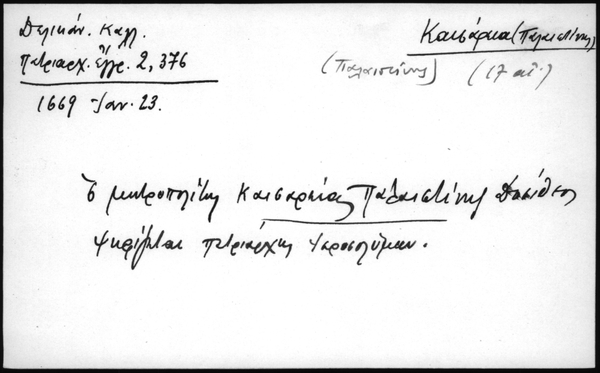 Δελικάν. Καλλ.
Πατριαρχ. Ἔγγρ. 2, 376
1669 Ἰαν. 23.
Καισάρεια (Παλαιστίνης)
(Παλαιστίνης) (17 αἰ.)
Ὁ μητροπολίτης Καισαρείας Παλαιστίνης Δοσίθεος
ψηφίζεται πατριάρχης Ἱεροσολύμων.